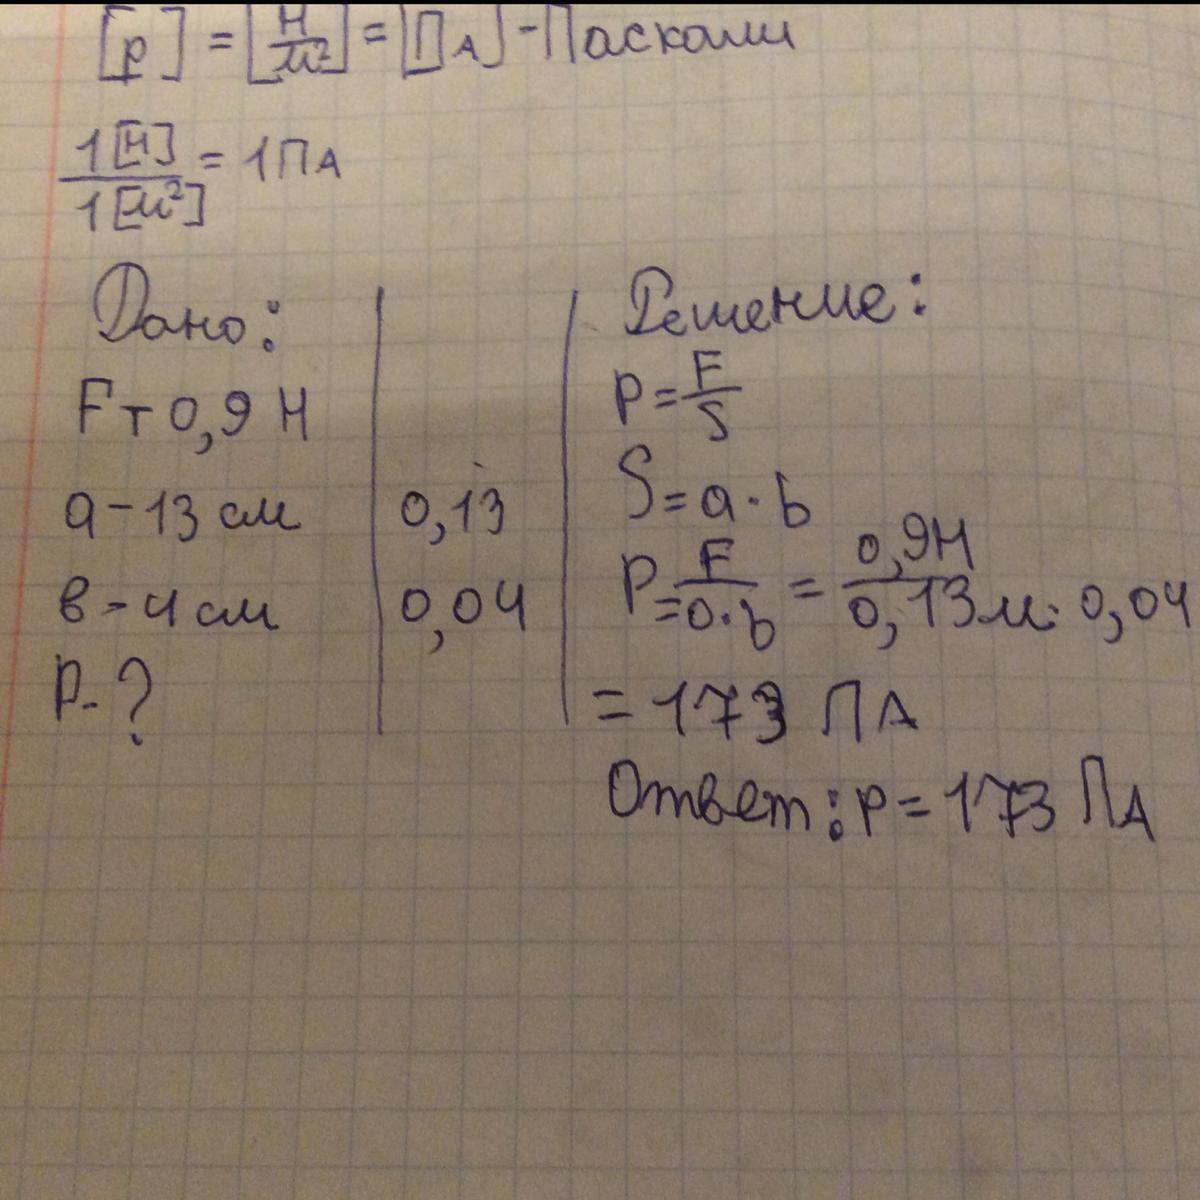 [p] = [Н/м²] = [ПА] - Паскали
1[Н]/1[м²] = 1ПА
Дано:
Fт 0,9 Н
a - 13 см 0,13
в - 4 см 0,04
P - ?
Решение:
P = F/S
S = a · b
P = F/a·b = 0,9Н/0,13м · 0,04
= 173 ПА
Ответ: p = 173 ПА